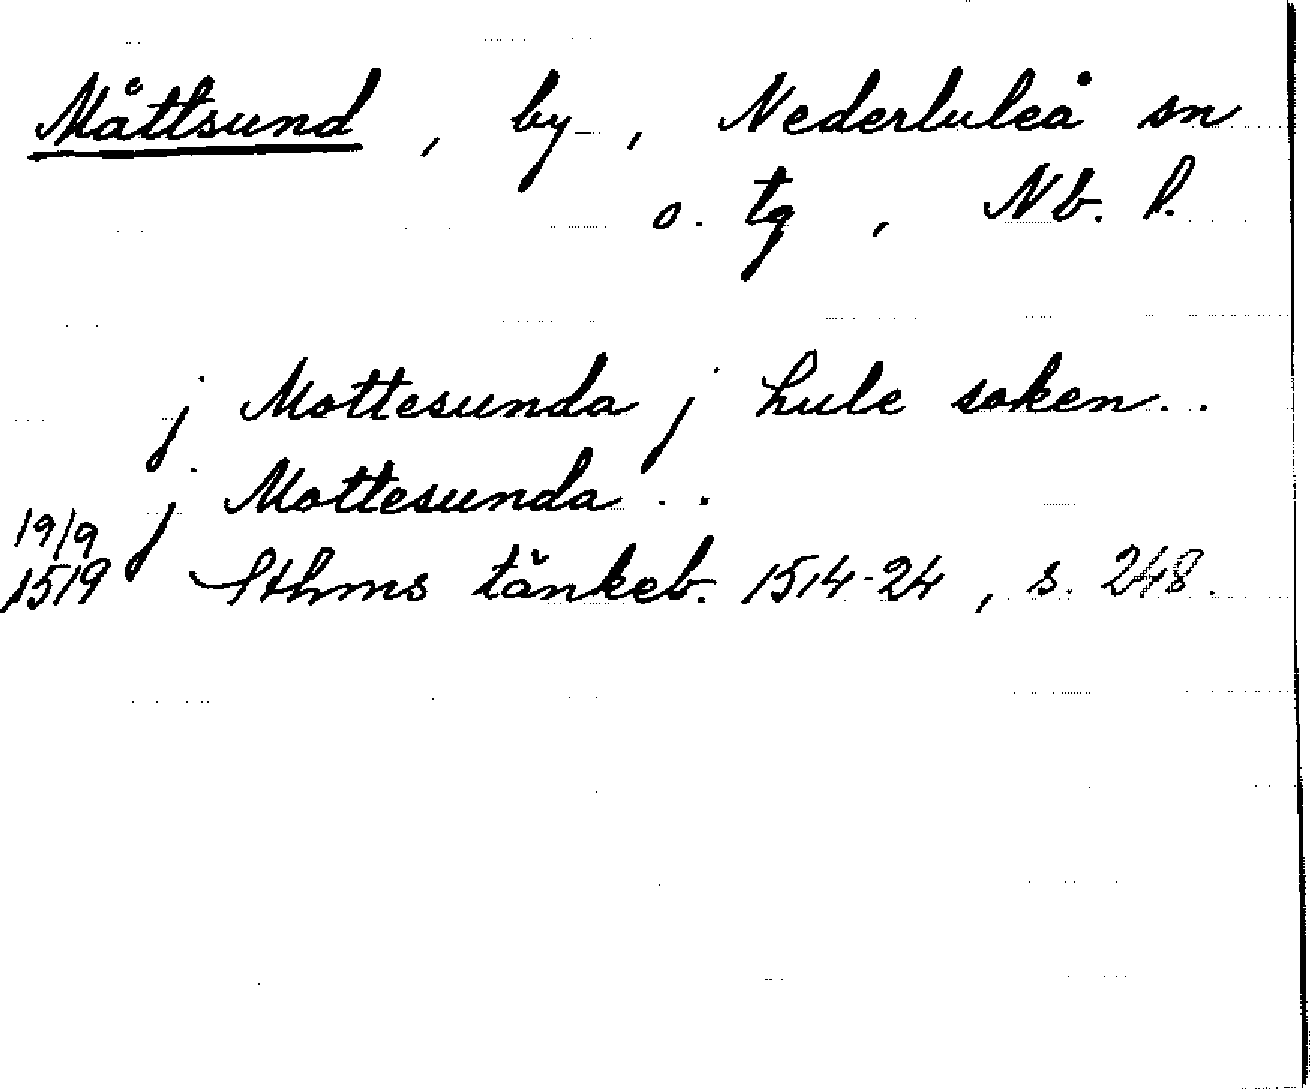 Måttsund, by, Nederluleå sn
o. tg, Nb. l.
j Mottesunda j Lule soken..
j Mottesunda..
19/9
1519 Sthms tänkeb. 1514-24, s. 248.